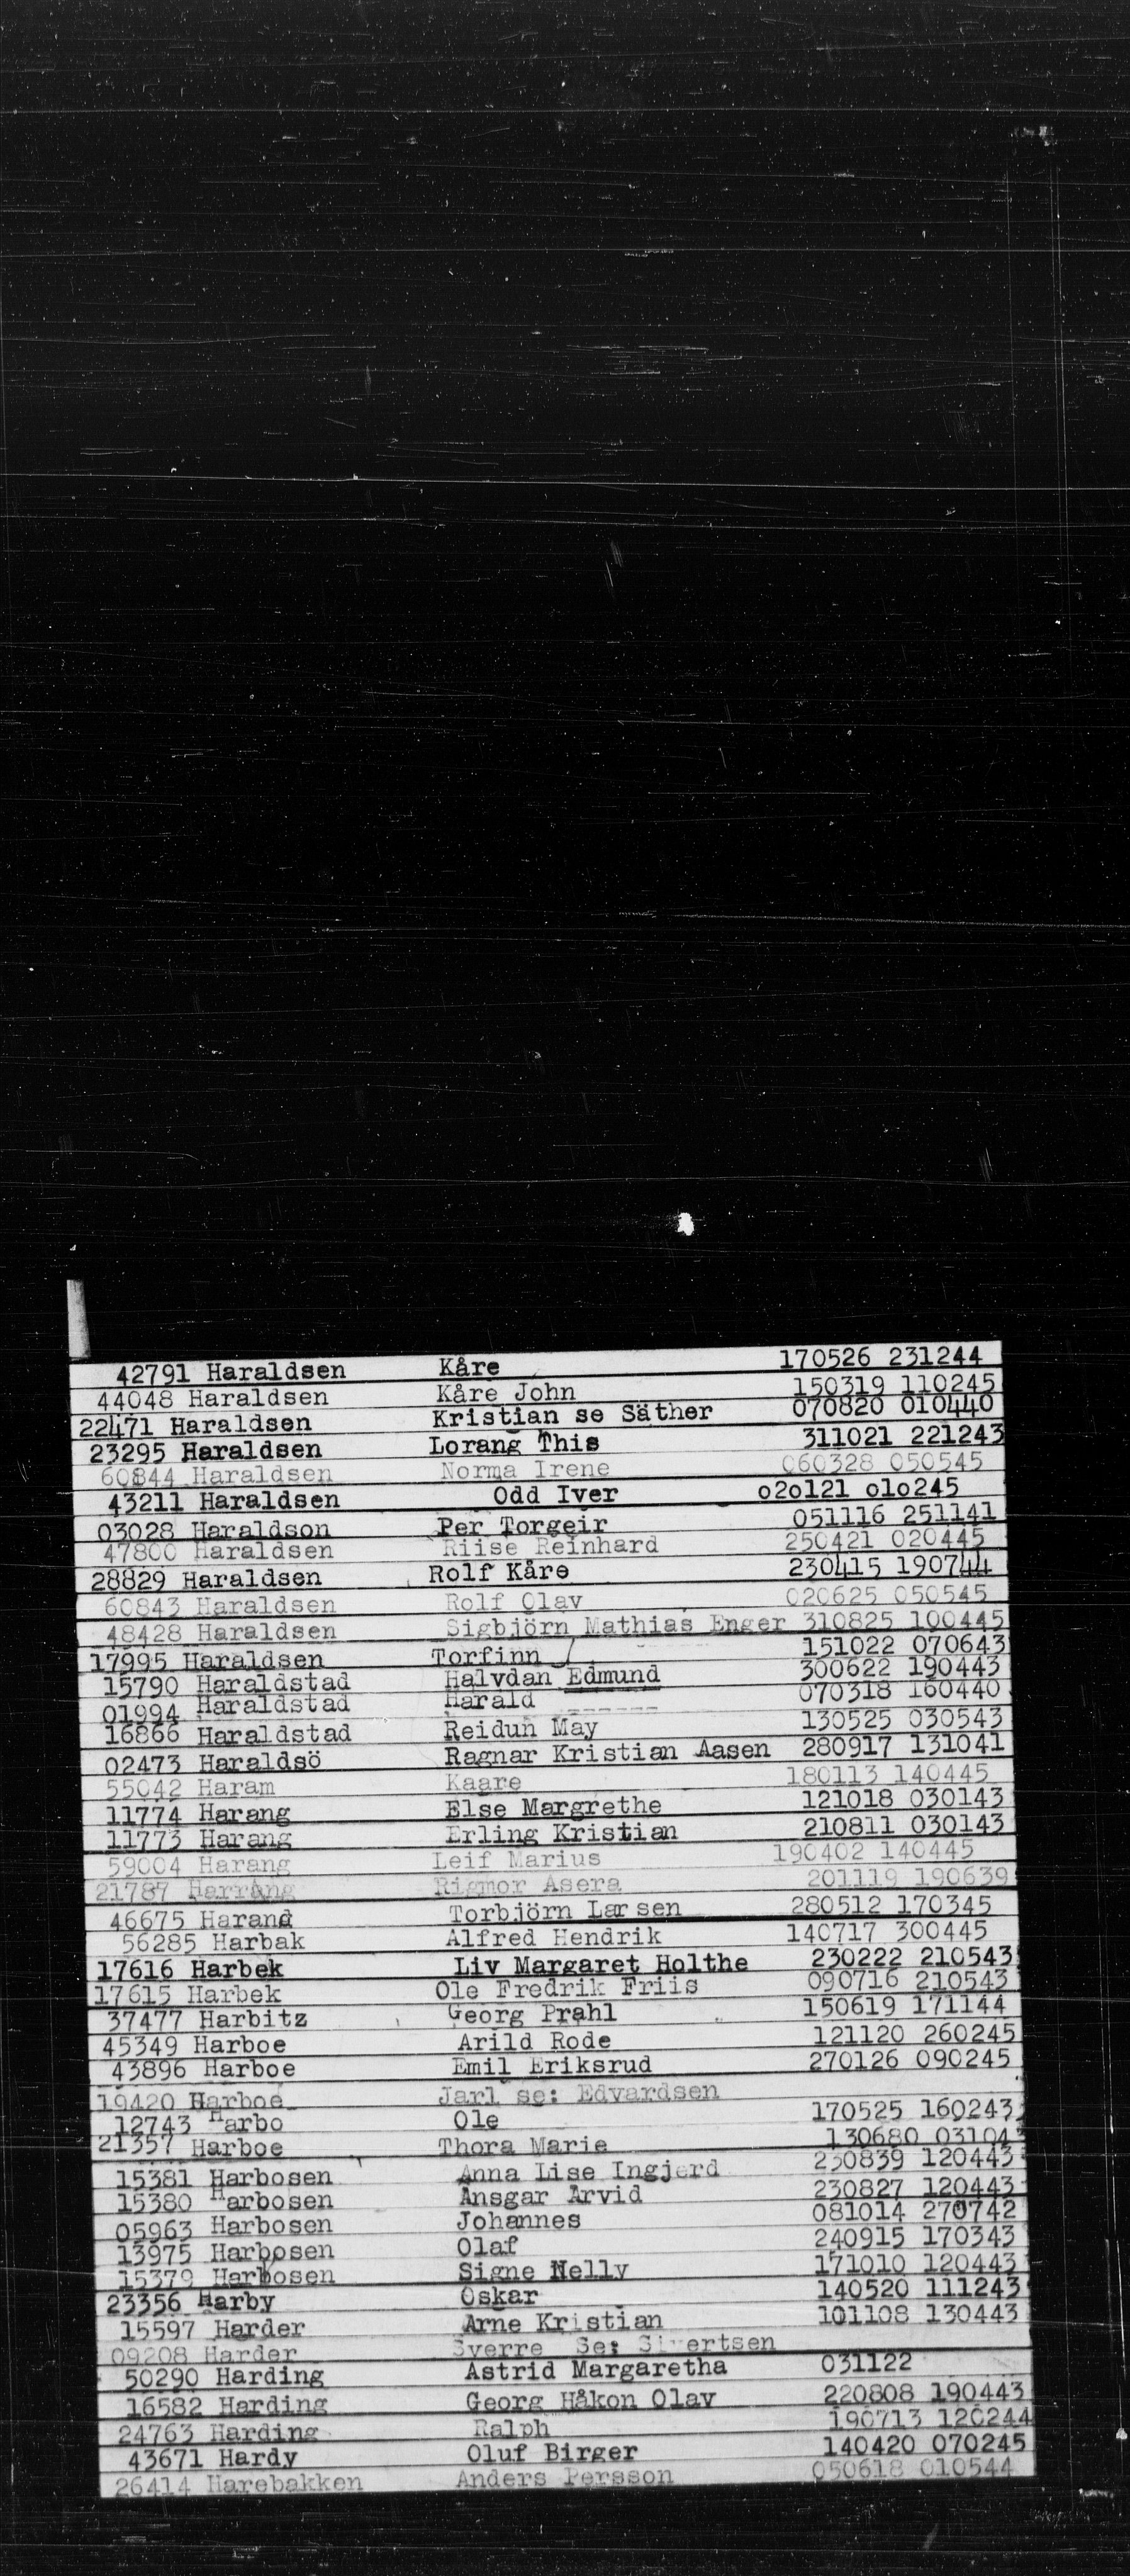 42791 Haraldsen Kåre 170526 231244
44048 Haraldsen Kåre John 150319 110245
22471 Haraldsen Kristian se Säther 070820 010440
23295 Haraldsen Lorang This 311021 221243
60844 Haraldsen Norma Irene 060328 050545
43211 Haraldsen Odd Iver 020121 010245
03028 Haraldson Per Torgeir 051116 251141
47800 Haraldsen Riise Reinhard 250421 020445
28829 Haraldsen Rolf Kåre 230415 190744
60843 Haraldsen Rolf Olav 020625 050545
48428 Haraldsen Sigbjörn Mathias Enger 310825 100445
17995 Haraldsen Torfinn 151022 070643
15790 Haraldstad Halvdan Edmund 300622 190443
01994 Haraldstad Harald 070318 160440
16866 Haraldstad Reidun May 130525 030543
02473 Haraldsö Ragnar Kristian Aasen 280917 131041
55042 Haram Kaare 180113 140445
11774 Harang Else Margrethe 121018 030143
11773 Harang Erling Kristian 210811 030143
59004 Harang Leif Marius 190402 140445
21787 Harrang Rigmor Asera 201119 190639
46675 Harand Torbjörn Larsen 280512 170345
56285 Harbak Alfred Hendrik 140717 300445
17616 Harbek Liv Margaret Holthe 230222 210543
17615 Harbek Ole Fredrik Friis 090716 210543
37477 Harbitz Georg Prahl 150619 171144
45349 Harboe Arild Rode 121120 260245
43896 Harboe Emil Eriksrud 270126 090245
19420 Harboe Jarl se: Edvardsen
12743 Harbo Ole 170525 160243
21357 Harboe Thora Marie 130680 031043
15381 Harbosen Anna Lise Ingjerd 250839 120443
15380 Harbosen Ansgar Arvid 230827 120443
05963 Harbosen Johannes 081014 270742
13975 Harbosen Olaf 240915 170343
15379 Harbosen Signe Nelly 171010 120443
23356 Harby Oskar 140520 111243
15597 Harder Arne Kristian 101108 130443
09208 Harder Sverre Se: Sivertsen
50290 Harding Astrid Margaretha 031122
16582 Harding Georg Håkon Olav 220808 190443
24763 Harding Ralph 190713 120244
43671 Hardy Oluf Birger 140420 070245
26414 Harebakken Anders Persson 050618 010544